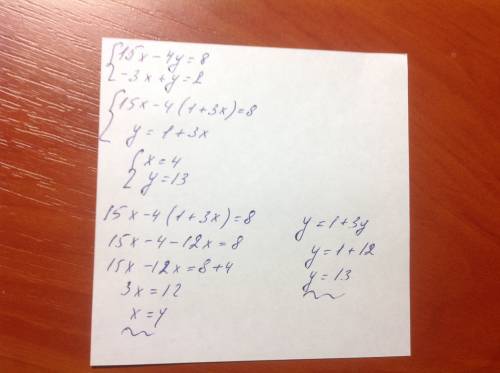 {15x-4y=8
-3x+y=2
{15x-4(1+3x)=8
y=1+3x
{x=4
y=13
15x-4(1+3x)=8
15x-4-12x=8
15x-12x=8+4
3x=12
x=4
y=1+3y
y=1+12
y=13